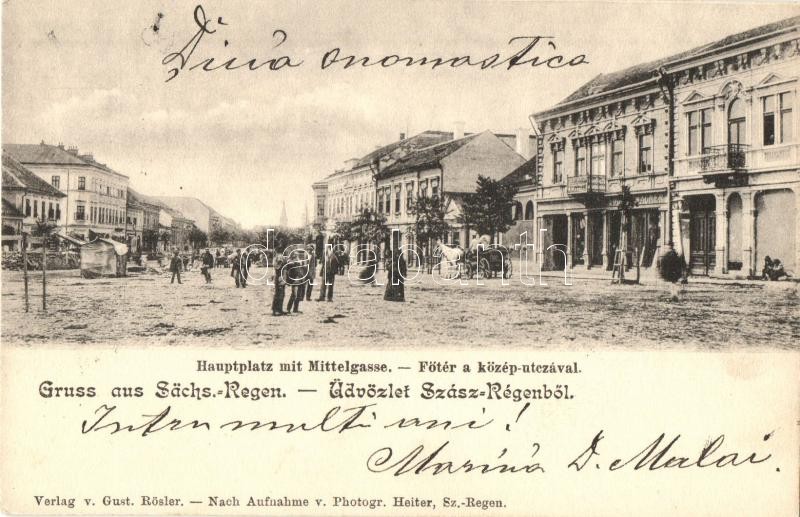 Diua onomastica
darabanth
Hauptplatz mit Mittelgasse. — Főtér a közép-utczával.
Gruss aus Sächs.-Regen. — Üdvözlet Szász-Régenből.
Intru multi ani!
Marina D. Malai.
Verlag v. Gust. Rösler. — Nach Aufnahme v. Photogr. Heiter, Sz.-Regen.